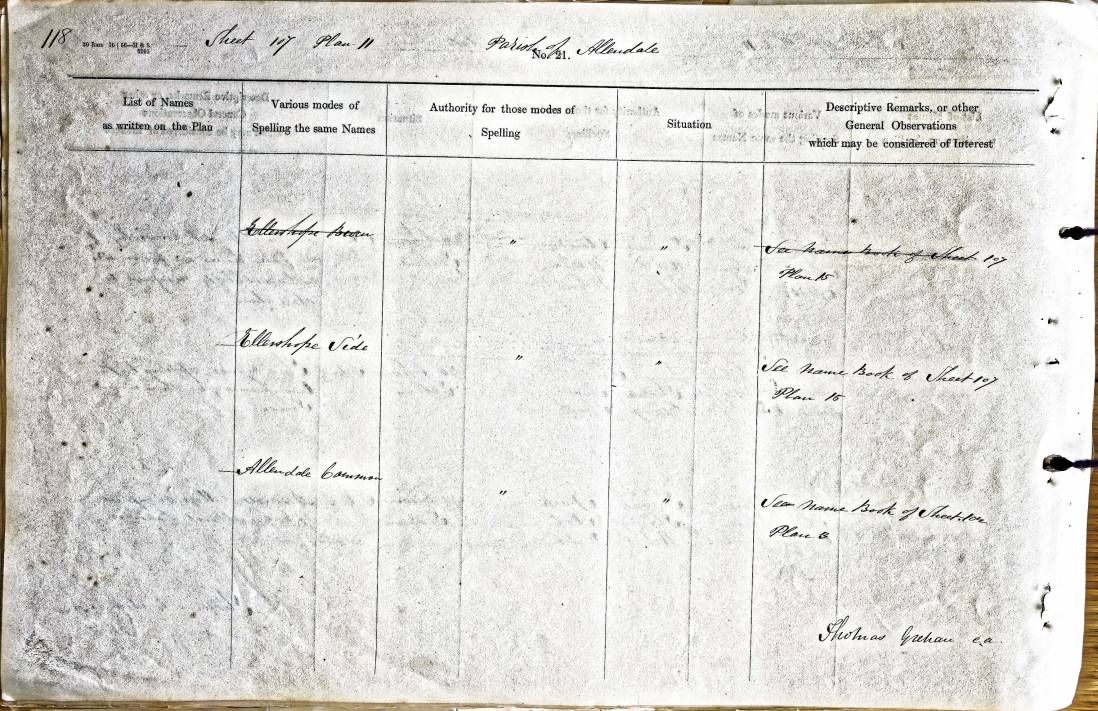 118
Sheet 107 Plan 11
Parish of Allendale
No. 21.
List of Names
as written on the Plan
Various modes of
Spelling the same Names
Authority for those modes of
Spelling
Situation
Descriptive Remarks, or other
General Observations
which may be considered of Interest
Ellershope
"
"
See Name Book of Sheet 107
Plan 15
Ellershope Side
"
"
See Name Book of Sheet 107
Plan 15
Allendale Common
"
"
See Name Book of Sheet
Plan
Thomas c.a.